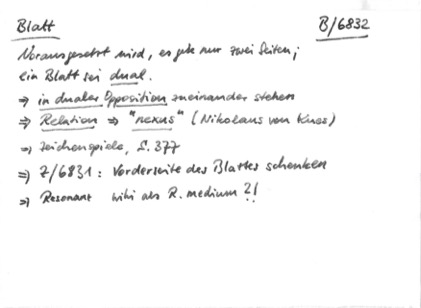 Blatt B/6832
Vorausgesetzt wird, es gebe nur zwei Seiten;
ein Blatt sei dual.
⇒ in dualer Opposition zueinander stehen
⇒ Relation ⇒ "nexus" (Nikolaus von Kues)
⇒ Zeichenspiele, S. 377
⇒ Z/6831: Vorderseite des Blattes schenken
⇒ Resonanz wiki als R. medium?!